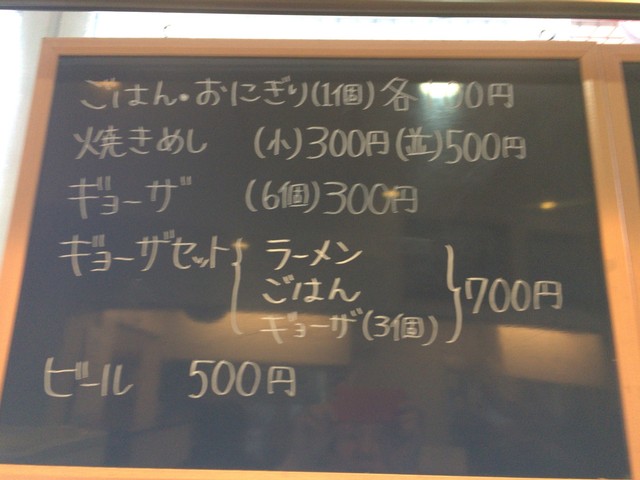 ごはん・おにぎり(1個) 各
焼きめし (小)300円(並)500円
ギョーザ (6個)300円
ギョーザセット{ ラーメン
ごはん
ギョーザ(3個) }700円
ビール 500円